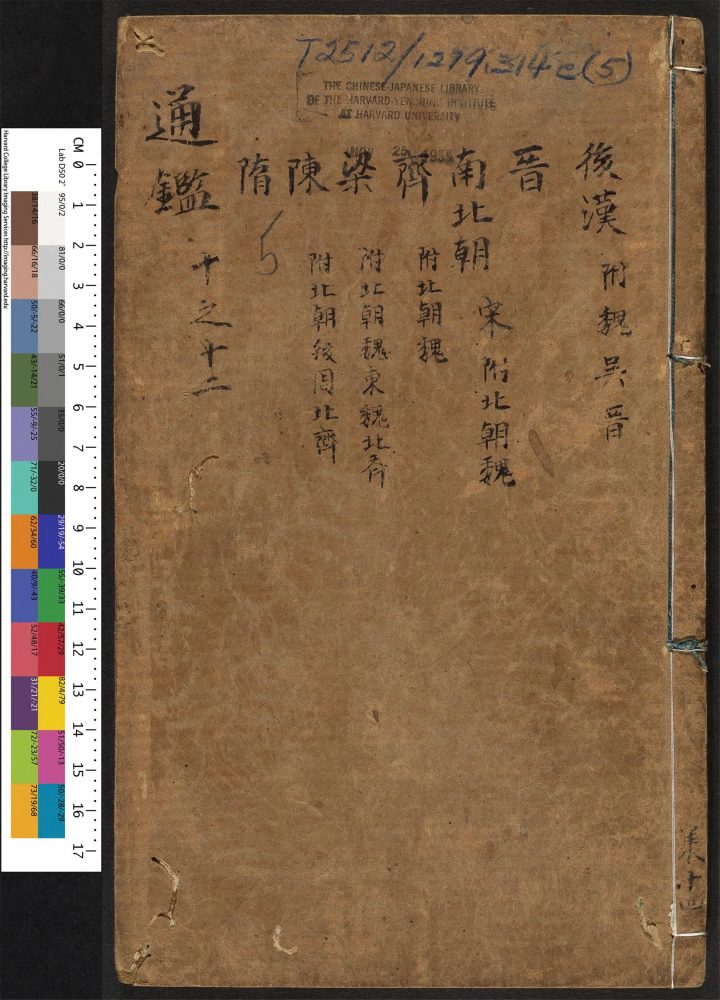 T2512/1279.314c(5)
THE CHINESE-JAPANESE LIBRARY
OF THE HARVARD-YENCHING INSTITUTE
AT HARVARD UNIVERSITY
NOV 25 1958
後漢 附魏吳晉
晉
南北朝 宋附北朝魏
齊 附北朝魏
梁 附北朝魏東魏北齐
陳 附北朝後周北齊
隋
5
通鑑 十之十二
共十四
CM 0 1 2 3 4 5 6 7 8 9 10 11 12 13 14 15 16 17
Harvard College Library Imaging Services http://imaging.harvard.edu
Lab D50 2°
95/0/2
81/0/0
66/0/0
51/0/1
35/0/0
20/0/0
29/19/-54
55/-39/33
42/57/29
82/4/79
51/50/-13
50/-28/-29
38/14/16
66/16/18
50/-5/-22
43/-14/21
55/9/-25
71/-32/0
62/34/60
40/9/-43
52/48/17
31/21/-21
72/-23/57
73/19/68